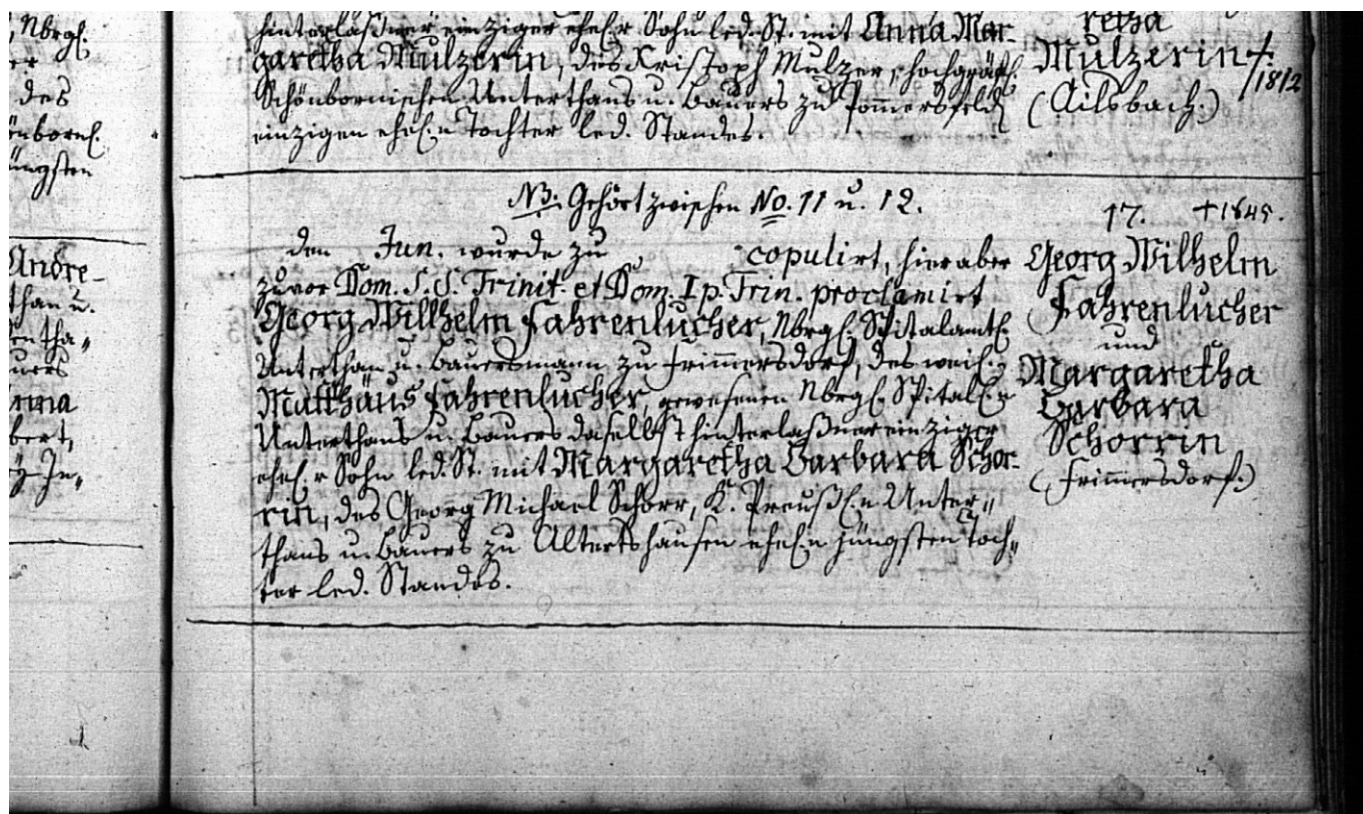 Nbrgl.
er
des
önbornl.
üngsten
Andre-
than u.
en tha„
uers
nna
bert,
In„
hinterlaßner einziger ehel.r Sohn led. St. mit Anna Mar-
garetha Mülzerin, des Kristoph Mülzer, hochgräfl.
Schönbornischen Unterthans u. Bauers zu Pom̄ersfeld
einzigen ehel.n Tochter led. Standes.
retha
Mülzerin †.
1812
(Ailsbach.)
NB. Gehört zwischen No. 11 u. 12.
den Jun. wurde zu copulirt, hier aber
zuvor Dom. S. S. Trinit. et Dom. I p. Trin. proclamirt
Georg Willhelm Fahrenlucher, Nbrgl. Spitalamtl.
Unterthan u. Bauersmann zu Frim̄ersdorf, des weil.
Matthäus Fahrenlucher, gewesenen Nbrgl. Spital.n
Unterthans u. Bauers daselbst hinterlaßner einziger
ehel.r Sohn led. St. mit Margaretha Barbara Schor-
rin, des Georg Michael Schorr, K. Preußl.n Unter„
thans u. Bauers zu Altertshausen ehel.n jüngsten Toch„
ter led. Standes.
17. † 1845.
Georg Wilhelm
Fahrenlucher
und
Margaretha
Barbara
Schorrin
(Frim̄ersdorf.)